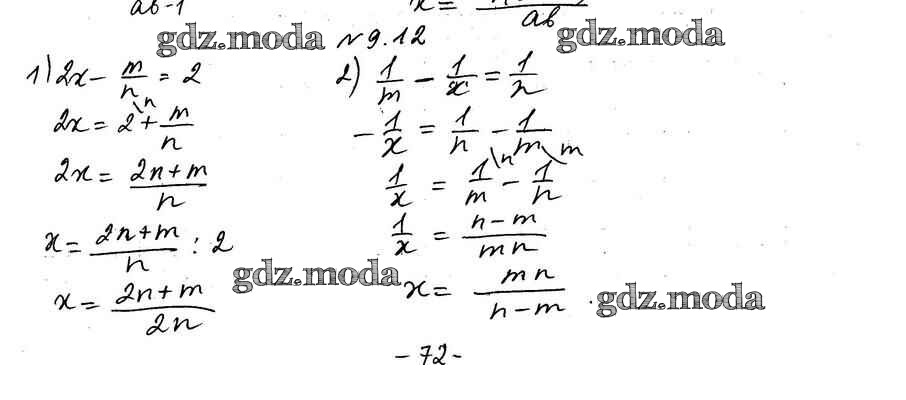 ab-1
ab
gdz.moda №9.12 gdz.moda
1) 2x - m/n = 2
2x = 2\n + m/n
2x = (2n+m)/n
x = (2n+m)/n : 2
x = (2n+m)/2n
2) 1/m - 1/x = 1/n
-1/x = 1/n - 1/m
1/x = 1/m\n - 1/n\m
1/x = (n-m)/mn
x = mn/(n-m).
gdz.moda
gdz.moda
-72-